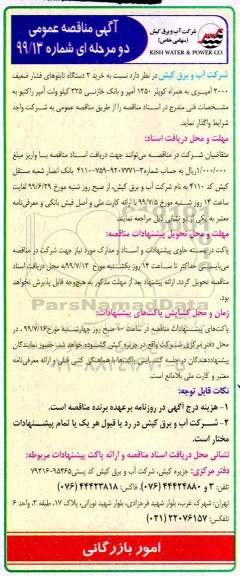 آگهی مناقصه عمومی
دو مرحله ای شماره ۹۹/۱۳
شرکت آب و برق کیش
(سهامی خاص)
KISH WATER & POWER CO.
شرکت آب و برق کیش در نظر دارد نسبت به خرید ۲ دستگاه تابلوهای فشار ضعیف
۲۰۰۰ آمپری به همراه کوپلر ۱۲۵۰ آمپر و بانک خازنی ۳۲۵ کیلو وات آمپر راکتیو به
مشخصات فنی مندرج در اسناد مناقصه را از طریق مناقصه عمومی به شرکت واجد
شرایط واگذار نماید.
مهلت و محل دریافت اسناد:
متقاضیان شرکت در مناقصه می‌توانند جهت دریافت اسناد مناقصه با واریز مبلغ
۱/۰۰۰/۰۰۰ریال به حساب شماره ۳-۹۲۰۷۷۷۱-۷۵۹-۴۱۱۰ بانک انصار شعبه مستقل
کیش کد ۴۱۱۰ به نام شرکت آب و برق کیش، از صبح روز شنبه مورخ ۹۹/۶/۲۹ لغایت
ساعت ۱۴ روز شنبه مورخ ۹۹/۷/۵ با ارائه کارت ملی و اصل فیش بانکی و معرفی‌نامه
معتبر به یکی از دو نشانی ذیل مراجعه نمایند.
مهلت و محل تحویل پیشنهادات مناقصه:
پاکت در بسته حاوی پیشنهادات و اسناد و مدارک مورد نیاز جهت شرکت در مناقصه
می‌بایستی حداکثر تا ساعت ۱۴ روز یکشنبه مورخ ۹۹/۷/۱۳ به محل دریافت اسناد
مناقصه تحویل گردد. ارائه پیشنهاد بعد از مهلت مذکور به هیچ‌وجه قابل پذیرش نخواهد
بود.
زمان و محل گشایش پاکت‌های پیشنهادات:
پاکت‌های پیشنهادات مناقصه در ساعت ۱۰ صبح روز چهارشنبه مورخ ۹۹/۷/۱۶، در
محل دفتر مرکزی شرکت واقع در جزیره کیش گشوده خواهد شد. حضور نمایندگان
پیشنهاددهندگان در جلسه گشایش پاکت‌ها با هماهنگی کتبی قبلی و ارائه معرفی‌نامه
معتبر و کارت ملی بلامانع است.
نکات قابل توجه:
۱- هزینه درج آگهی در روزنامه برعهده برنده مناقصه است.
۲- شرکت آب و برق کیش در رد یا قبول هر یک یا تمام پیشنهادات
مختار است.
نشانی محل دریافت اسناد مناقصه و ارائه پاکت پیشنهادات مربوطه:
دفتر مرکزی: جزیره کیش، شرکت آب و برق کیش کد پستی ۹۵۴۶۵-۷۹۴۱۶
تلفن: ۳ و ۴۴۴۲۴۸۸۰ (۰۷۶)، فاکس: ۴۴۴۲۳۸۱۸ (۰۷۶)
تهران: شهرک غرب، بلوار شهید فرحزادی، بلوار شهید نورانی، پلاک ۱۷، طبقه ۳، واحد ۶
تلفکس: ۲۲۰۷۶۱۵۷ (۰۲۱)
امور بازرگانی
ParsNamadData